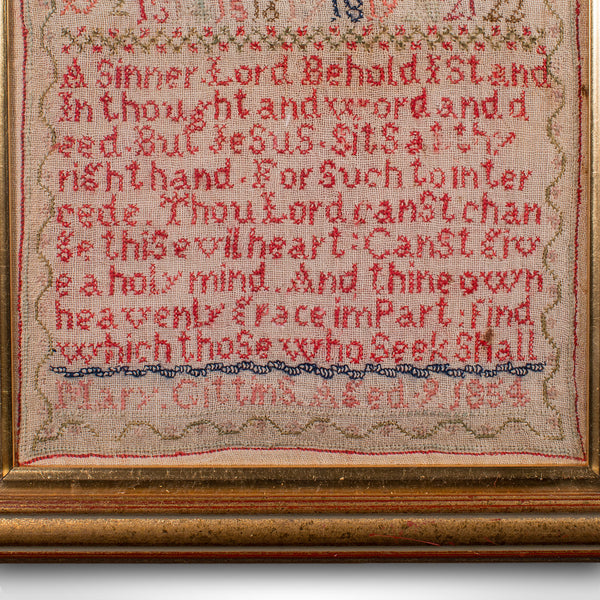 21 22
A Sinner Lord Behold I Stand
In thought and word and d
eed. But JeSuS. SitS at thy
right hand. For Such to inter
cede. Thou Lord canSt chan
ge thiS evil heart: CanSt Giv
e a holy mind. And thine own
heavenly Grace imPart: find
which thoSe who Seek Shall
Mary. Gittins. Aged 9 1854